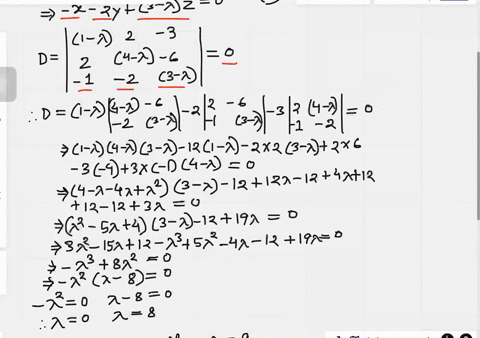 ⇒ -x - 2y + (3-λ)z = 0
D = | (1-λ) 2 -3 |
| 2 (4-λ) -6 | = 0
| -1 -2 (3-λ) |
∴ D = (1-λ) |(4-λ) -6; -2 (3-λ)| -2 |2 -6; -1 (3-λ)| -3 |2 (4-λ); -1 -2| = 0
⇒ (1-λ)(4-λ)(3-λ) -12(1-λ) - 2×2(3-λ) + 2×6
-3(-4) + 3×(-1)(4-λ) = 0
⇒ (4-λ-4λ+λ²)(3-λ) -12 + 12λ -12 + 4λ + 12
+12 -12 + 3λ = 0
⇒ (λ² - 5λ + 4)(3-λ) -12 + 19λ = 0
⇒ 3λ² - 15λ + 12 - λ³ + 5λ² - 4λ - 12 + 19λ = 0
⇒ -λ³ + 8λ² = 0
⇒ -λ² (λ - 8) = 0
-λ² = 0 λ - 8 = 0
∴ λ = 0 λ = 8